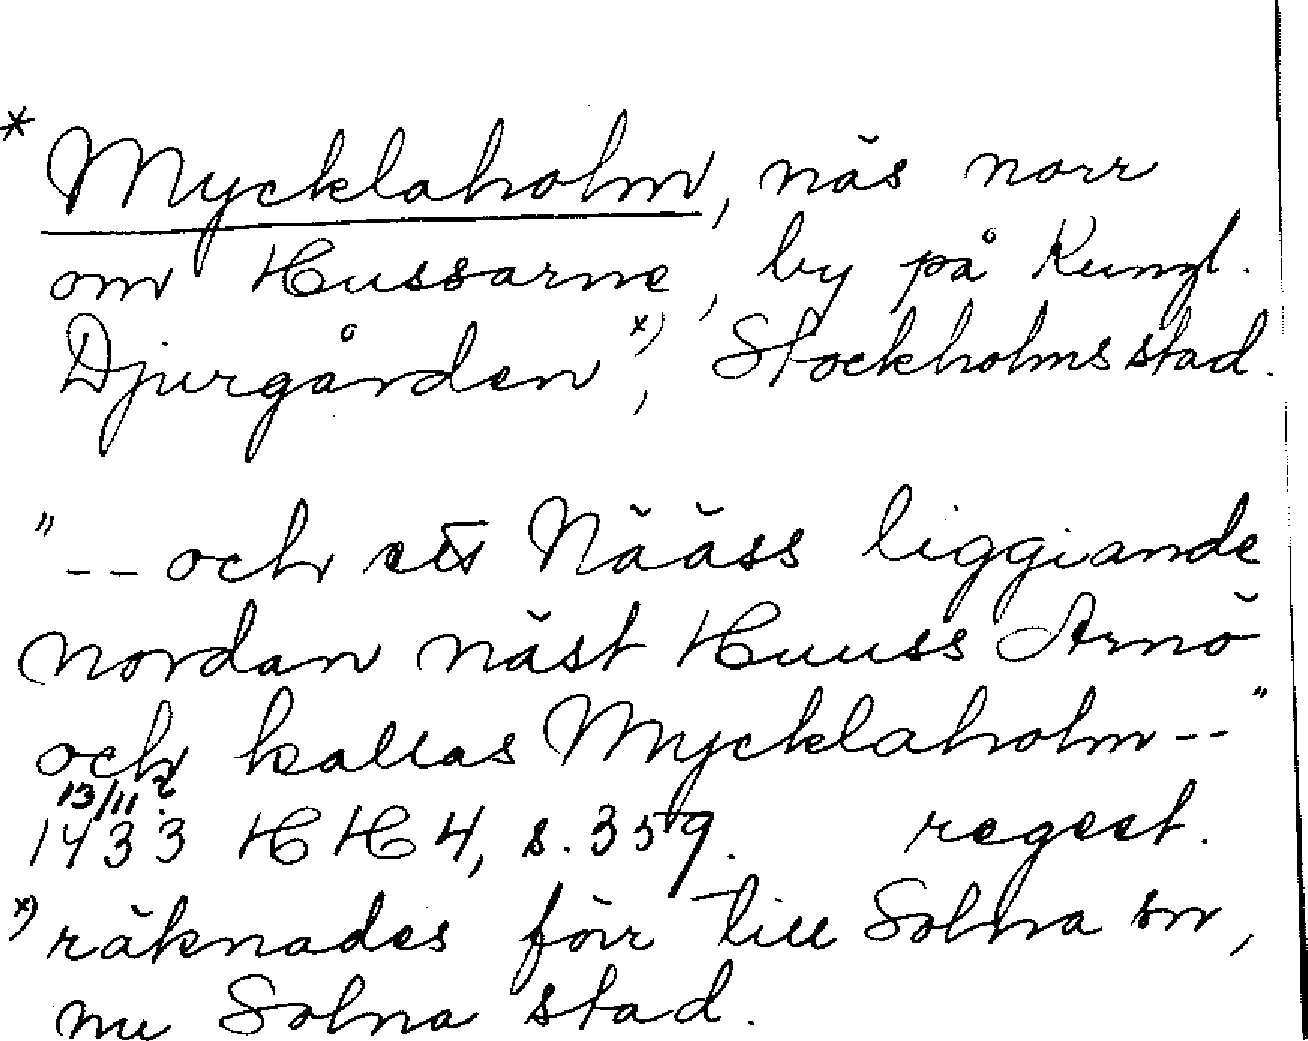 * Mycklaholm, näs norr
om Hussarne, by på Kungl.
Djurgården x), Stockholms stad.
"-- och ett Nääss liggiande
nordan näst Huuss Arnö
och kallas Mycklaholm --"
13/11 ?
1433 HH 4, s. 359. regest.
x) räknades förr till Solna sn,
nu Solna stad.